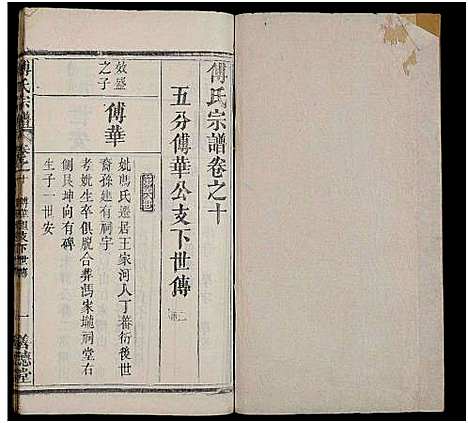 傅氏宗譜卷之十
五分傅華公支下世傳
效盛
之子
傅華
妣馮氏遷居王家河人丁蕃衍後世
裔孫建有祠宇
考妣生卒俱脫合葬馮家壠祠堂右
側艮坤向有碑
生子一世安
傅氏宗譜
一